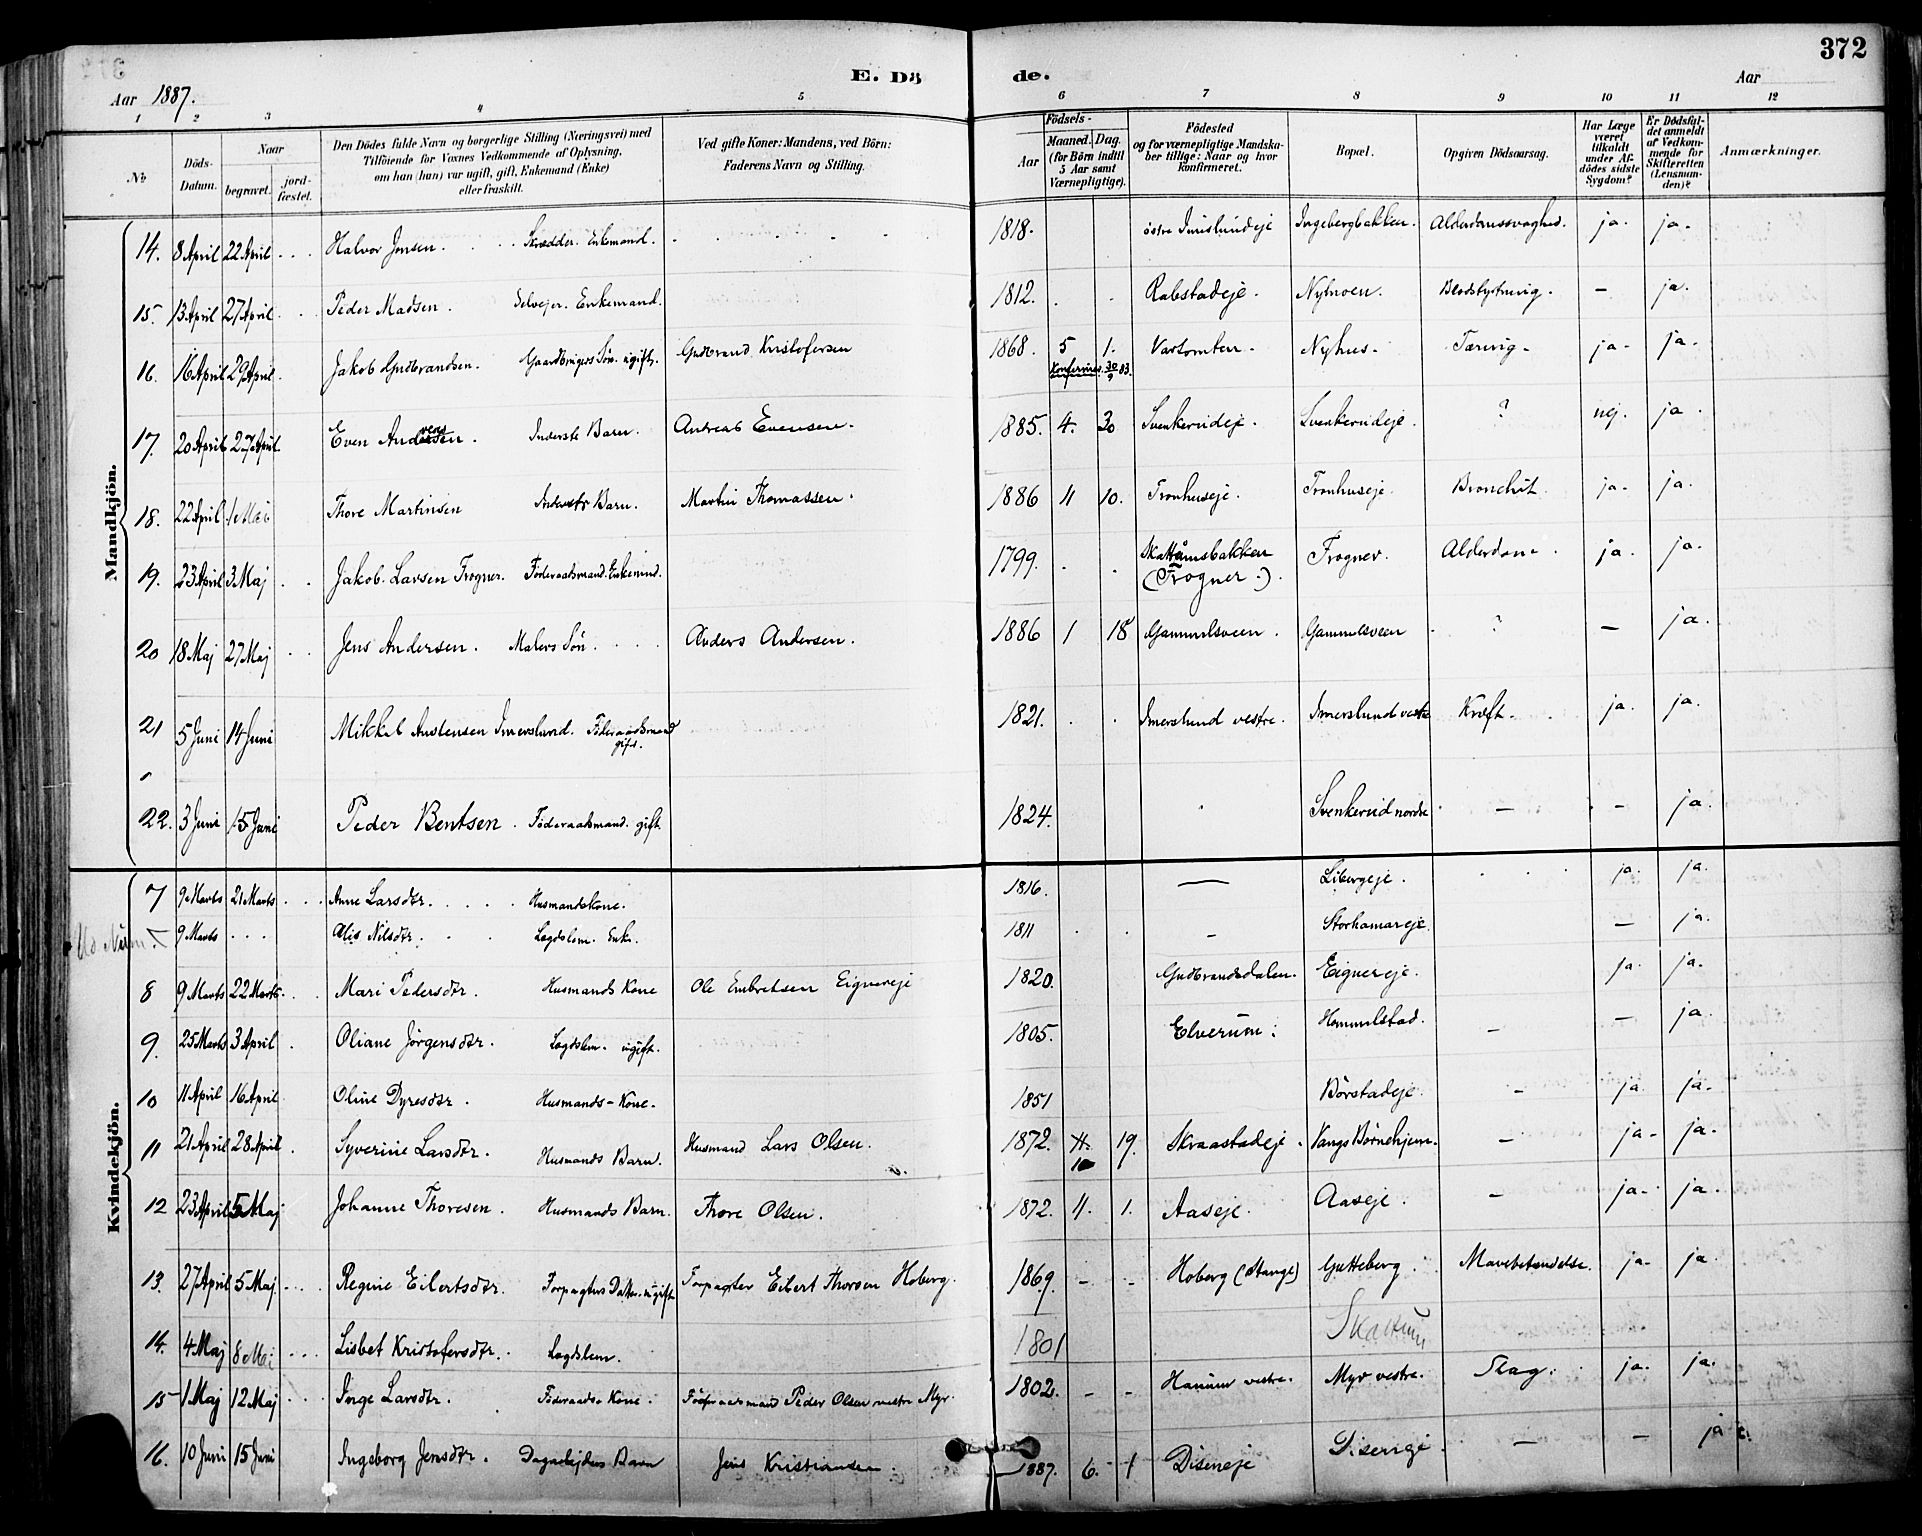 372
E. Dö de.
Aar 1887. Aar
1 2 3 4 5 6 7 8 9 10 11 12
No Döds-Datum. Naar begravet. jord-fæstet. Den Dödes fulde Navn og borgerlige Stilling (Næringsvei) med Tilföiende for Voxnes Vedkommende af Oplysning, om han (hun) var ugift, gift, Enkemand (Enke) eller fraskilt. Ved gifte Koner: Mandens, ved Börn: Faderens Navn og Stilling. Födsels- Aar Maaned. Dag. (for Börn indtil 5 Aar samt Værnepligtige). Födested og for værnepligtige Mandskaber tillige: Naar og hvor konfirmeret. Bopæl. Opgiven Dödsaarsag. Har Læge været tilkaldt under Afdödes sidste Sygdom? Er Dödsfaldet anmeldt af Vedkommende for Skifteretten (Lensmanden)? Anmærkninger.
Mandkjön.
14. 8 April 22 April Halvor Jensen. Skrædder. Enkemand. 1818. østre Ingebergbakken. Alderdomssvaghed. ja. ja.
15. 13 April 27 April Peder Madsen. Selvejer. Enkemand. 1812. Rabstadeje. Nymoen. Blodstyrtning. — ja.
16. 16 April 29 April Jakob Gudbrandsen. Gaardbrugers Søn. ugift. Gudbrand Kristofersen 1868. 5 1. Konfermeret 30/9 83. Nyhus. Tæring. ja. ja.
17. 20 April 27 April Even Andersen. Inderste Barn. Andreas Evensen. 1885. 4. 30 Svenkerudeje. Svenkerudeje. ? nej. ja.
18. 22 April 1 Mai Thore Martinsen Inderste Barn. Martin Thomassen. 1886 11 10. Tronhuseje. Tronhuseje. Bronchit. ja. ja.
19. 23 April 3 Maj Jakob Larsen Frogner. Föderaadsmand. Enkemnd. 1799. Skattumsbakken (Frogner.). Frogner. Alderdom. ja. ja.
20 18 Maj 27 Maj Jens Andersen. Malers Søn. Anders Andersen. 1886 1 18 Gammelsveen. Gammelsveen ? — ja.
21 5 Juni 14 Juni Mikkel Austensen Imerslund. Föderaadsmand gift. 1821. Imerslund vestre. Imerslund vestre Kræft. ja. ja.
22. 3 Juni 15 Juni Peder Bentsen. Föderaadsmand. gift. 1824. Svenkerud nordre — — ja.
Kvindekjön.
7 9 Marts 21 Marts Anne Larsdtr. Husmandskone. 1816. — Libergeje. ja. ja.
9 Marts Nilsdtr. Lægdslem. Enke. 1811 — Storhamareje. — ja.
8 9 Marts 22 Marts Mari Pedersdtr. Husmands Kone Ole Embretsen Eignereje 1820. Gudbrandsdalen. Eignereje. ja. ja.
9. 25 Marts 3 April Oliane Jørgensdtr. Lægdslem. ugift. 1805. Elverum. Hommelstad. — — ja.
10 11 April 16 April Oline Dyresdtr. Husmands-Kone. 1851 Børstadeje. — ja. ja.
11 21 April 28 April Syverine Larsdtr. Husmands Barn. Husmand Lars Olsen. 1872. 10 19. Skraastadeje. Vangs Børnehjem. — ja. ja.
12 23 April 5 Maj Johanne Thoresen. Husmands Barn. Thore Olsen. 1872. 11. 1. Aaseje. Aaseje. — ja. ja.
13. 27 April 5 Maj. Regine Eilertsdtr. Forpagters Datter. ugift Forpagter Eilert Thorsen Hoberg. 1869. — — Hoberg (Stange) Gutteberg. Mavebetændelse. ja. ja
14. 4 Maj 8 Mai Lisbet Kristofersdtr. Lægdslem. 1801 Skattum
15 1 Maj 12 Maj Inge Larsdtr. Föderaads Kone. Föderaadsmand Peder Olsen vestre Myr. 1802. — — vestre. Myr vestre. Slag. ja. ja.
16. 10 Juni 15 Juni Ingeborg Jensdtr. Dagarbejders Barn Jens Kristiansen. 1887. 6. 1 Diseneje Diseneje. — — ja